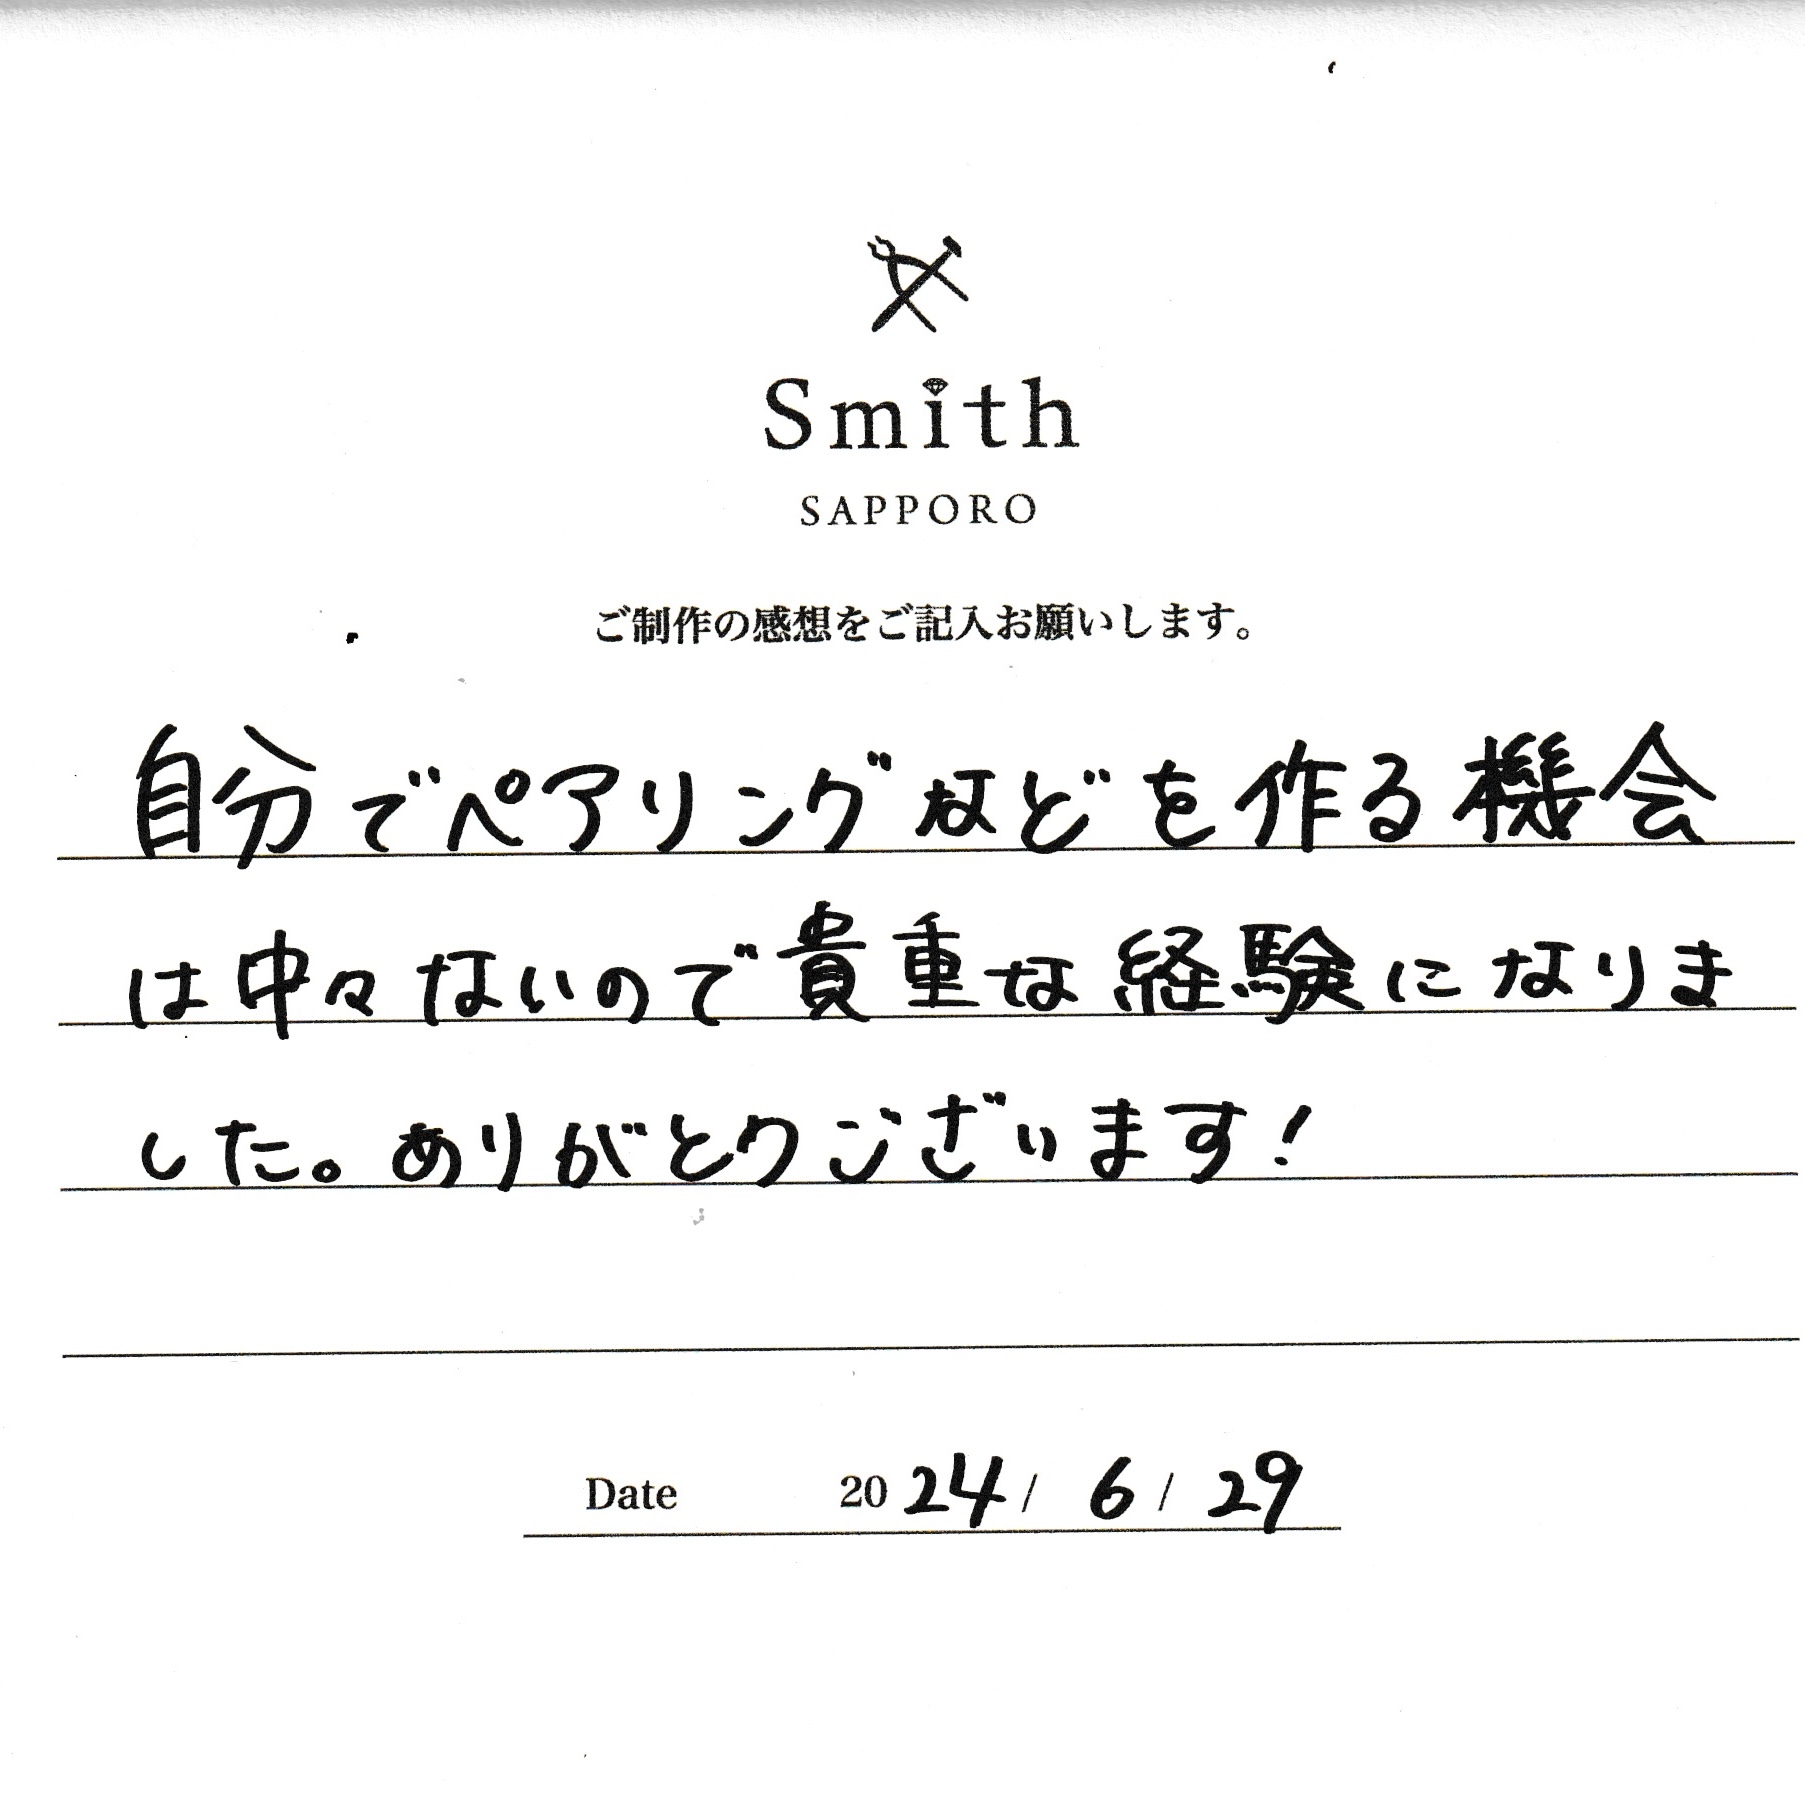 Smith
SAPPORO
ご制作の感想をご記入お願いします。
自分でペアリングなどを作る機会
は中々ないので貴重な経験になりま
した。ありがとうございます!
Date 2024/6/29